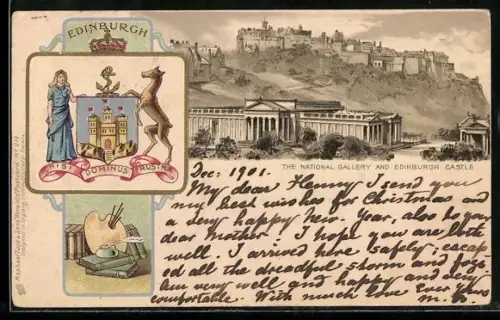 EDINBURGH
NISI DOMINUS FRUSTRA
THE NATIONAL GALLERY AND EDINBURGH CASTLE
Dec: 1901.
My dear Henny I send you
my best wishes for Christmas and
a very happy New. Year, also to your
dear Mother. I hope you are both
well. I arrived here safely, escap
ed all the dreadful storms and fogs
Am very well and happy and very
comfortable. With much love Ever yours
m.
Raphael Tuck & Sons